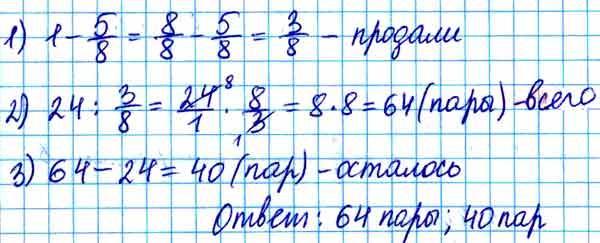 1) 1 - 5/8 = 8/8 - 5/8 = 3/8 - продали
2) 24 : 3/8 = 24 8/1 · 8/3 1 = 8 · 8 = 64 (пары) - всего
3) 64 - 24 = 40 (пар) - осталось
Ответ: 64 пары; 40 пар